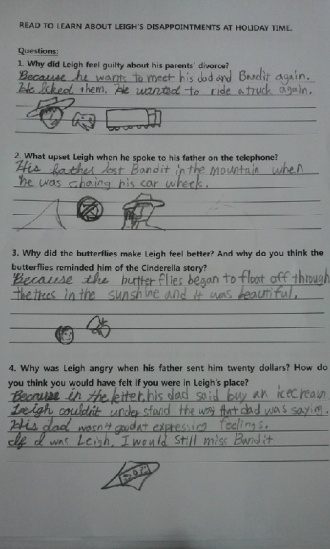 READ TO LEARN ABOUT LEIGH'S DISAPPOINTMENTS AT HOLIDAY TIME.
Questions:
1. Why did Leigh feel guilty about his parents' divorce?
Because he wants to meet his dad and Bandit again.
He liked them. He wanted to ride a truck again.
2. What upset Leigh when he spoke to his father on the telephone?
His father lost Bandit in the mountain when
he was chaing his car wheels.
3. Why did the butterflies make Leigh feel better? And why do you think the
butterflies reminded him of the Cinderella story?
Because the butterflies began to float off through
the trees in the sunshine and it was beautiful.
4. Why was Leigh angry when his father sent him twenty dollars? How do
you think you would have felt if you were in Leigh's place?
Because in the letter, his dad said buy an icecream
Leigh couldn't under stand the way that dad was saying.
His dad wasn't good at expressing feelings.
If I was Leigh, I would still miss Bandit